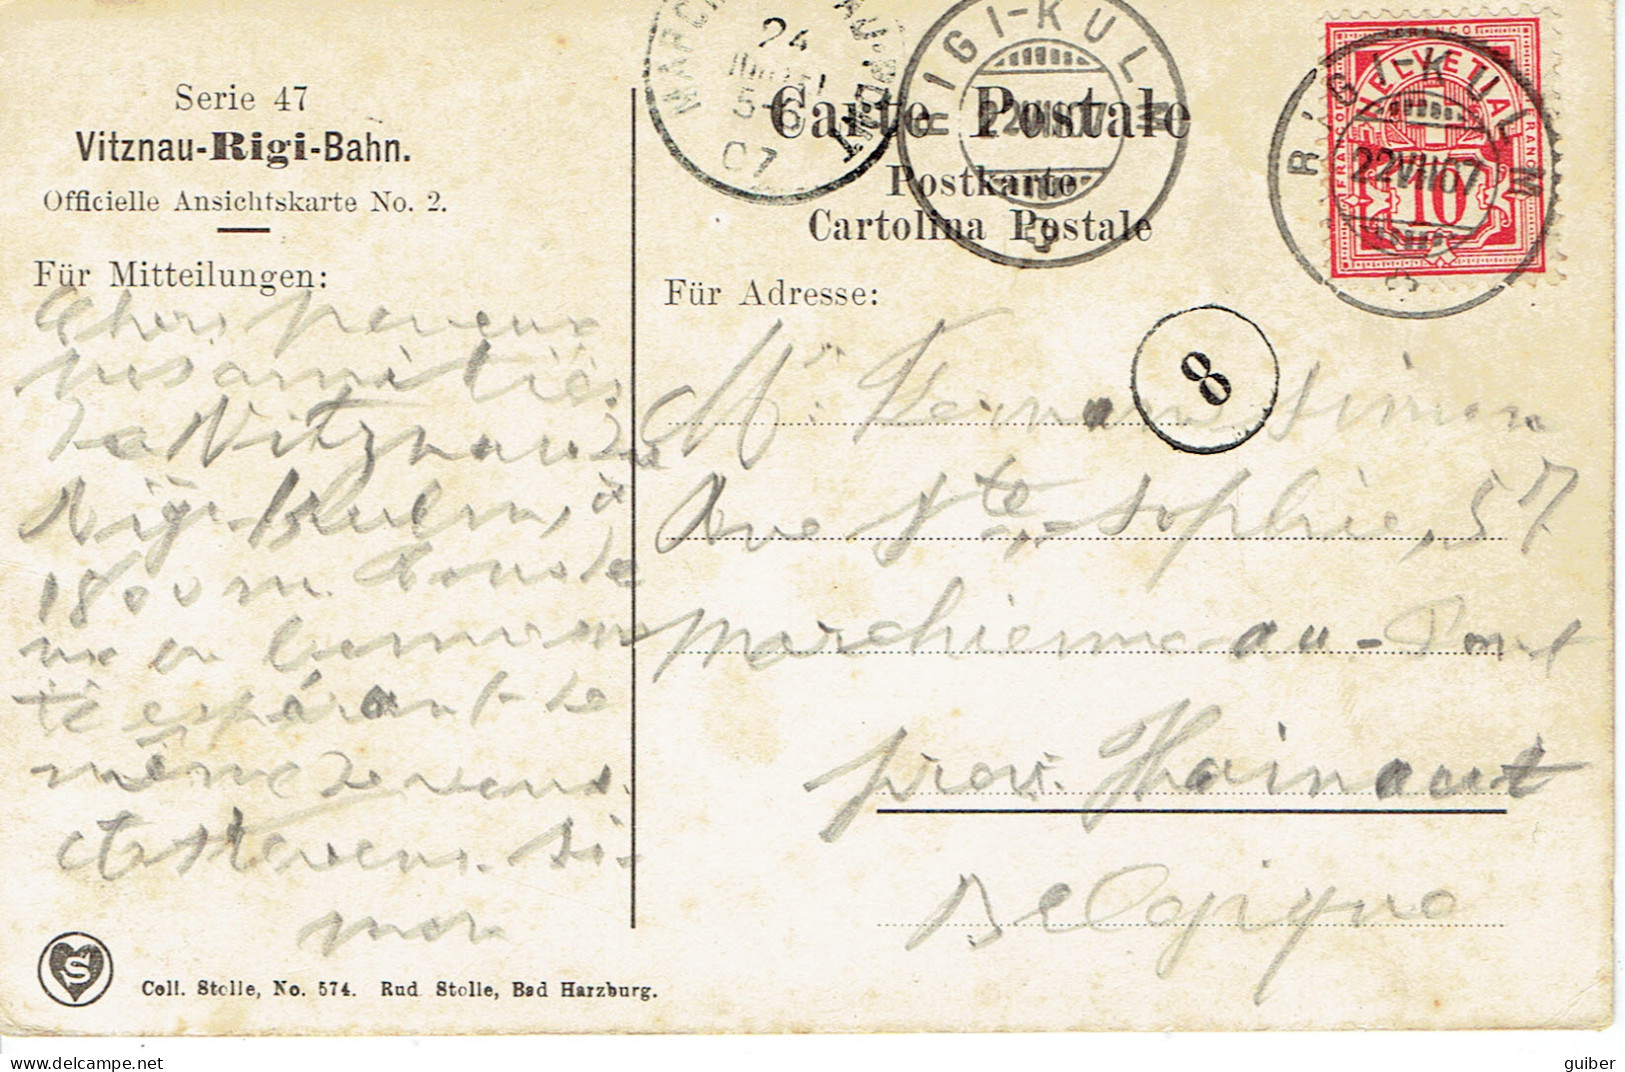 Serie 47
Vitznau-Rigi-Bahn.
Officielle Ansichtskarte No. 2.
Für Mitteilungen:
Chers neveux
nos amitiés
De Vitznau
Rigi Kulm, à
1800 m.
espérant de
même de vous.
Si-
mon
Coll. Stolle, No. 574. Rud. Stolle, Bad Harzburg.
24
5-6
07
RIGI-KULM
22 VII 07
Carte Postale
Postkarte
Cartolina Postale
Für Adresse:
8
Mr Fernand Simon
Rue Ste-Sophie, 57
Marchienne-au-Pont
prov. Hainaut
Belgique
FRANCO
HELVETIA
FRANCO
FRANCO
10
RIGI-KULM
22 VII 07
guiber